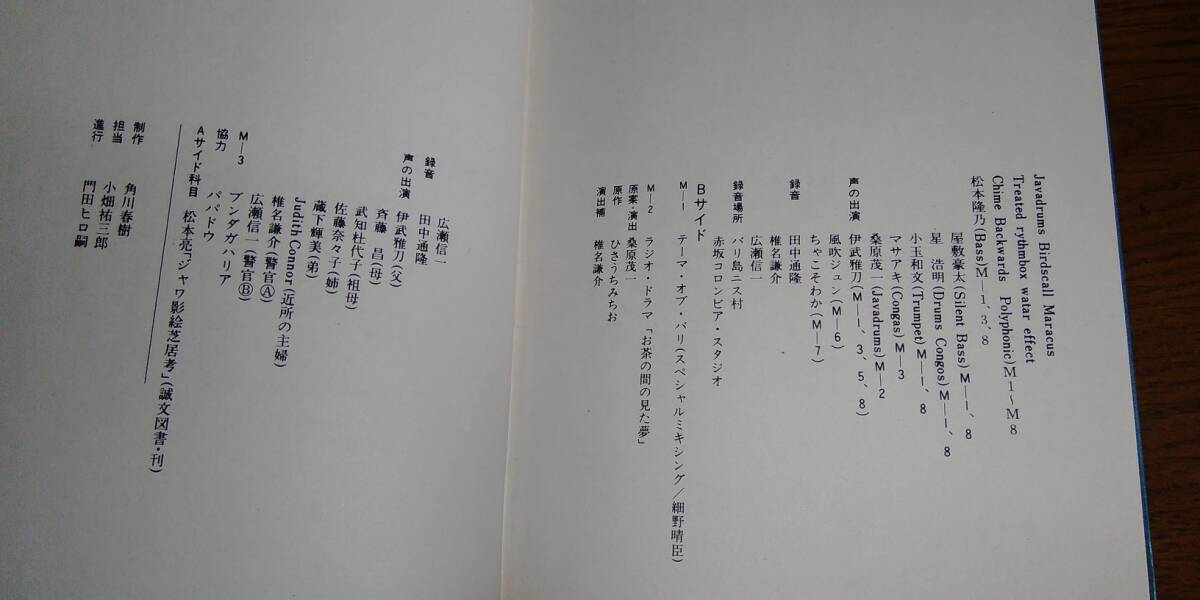 Javadrums Birdscall Maracus
Treated rythmbox watar effect
Chime Backwards Polyphonic)M1~M8
松本隆乃(Bass)M—1、3、8
屋敷豪太(Silent Bass)M—1、8
星 浩明(Drums Congos)M—1、8
小玉和文(Trumpet)M—1、8
マサアキ(Congas)M—3
桑原茂一(Javadrums)M—2
声の出演 伊武雅刀(M—1、3、5、8)
風吹ジュン(M—6)
ちゃこそわか(M—7)
録音 田中通隆
椎名謙介
広瀬信一
録音場所 バリ島ニス村
赤坂コロンビア・スタジオ
Bサイド
M—1 テーマ・オブ・バリ(スペシャルミキシング/細野晴臣)
M—2 ラジオ・ドラマ「お茶の間の見た夢」
原案・演出 桑原茂一
原作 ひさうちみちお
演出補 椎名謙介
広瀬信一
録音 田中通隆
声の出演 伊武雅刀(父)
斉藤 昌(母)
武知杜代子(祖母)
佐藤奈々子(姉)
蔵下輝美(弟)
Judith Connor(近所の主婦)
椎名謙介(警官Ⓐ)
広瀬信一(警官Ⓑ)
M—3 ブンダガハリア
協力 パパドウ
Aサイド科目 松本亮「ジャワ影絵芝居考」(誠文図書・刊)
制作 角川春樹
担当 小畑祐三郎
進行 門田ヒロ嗣